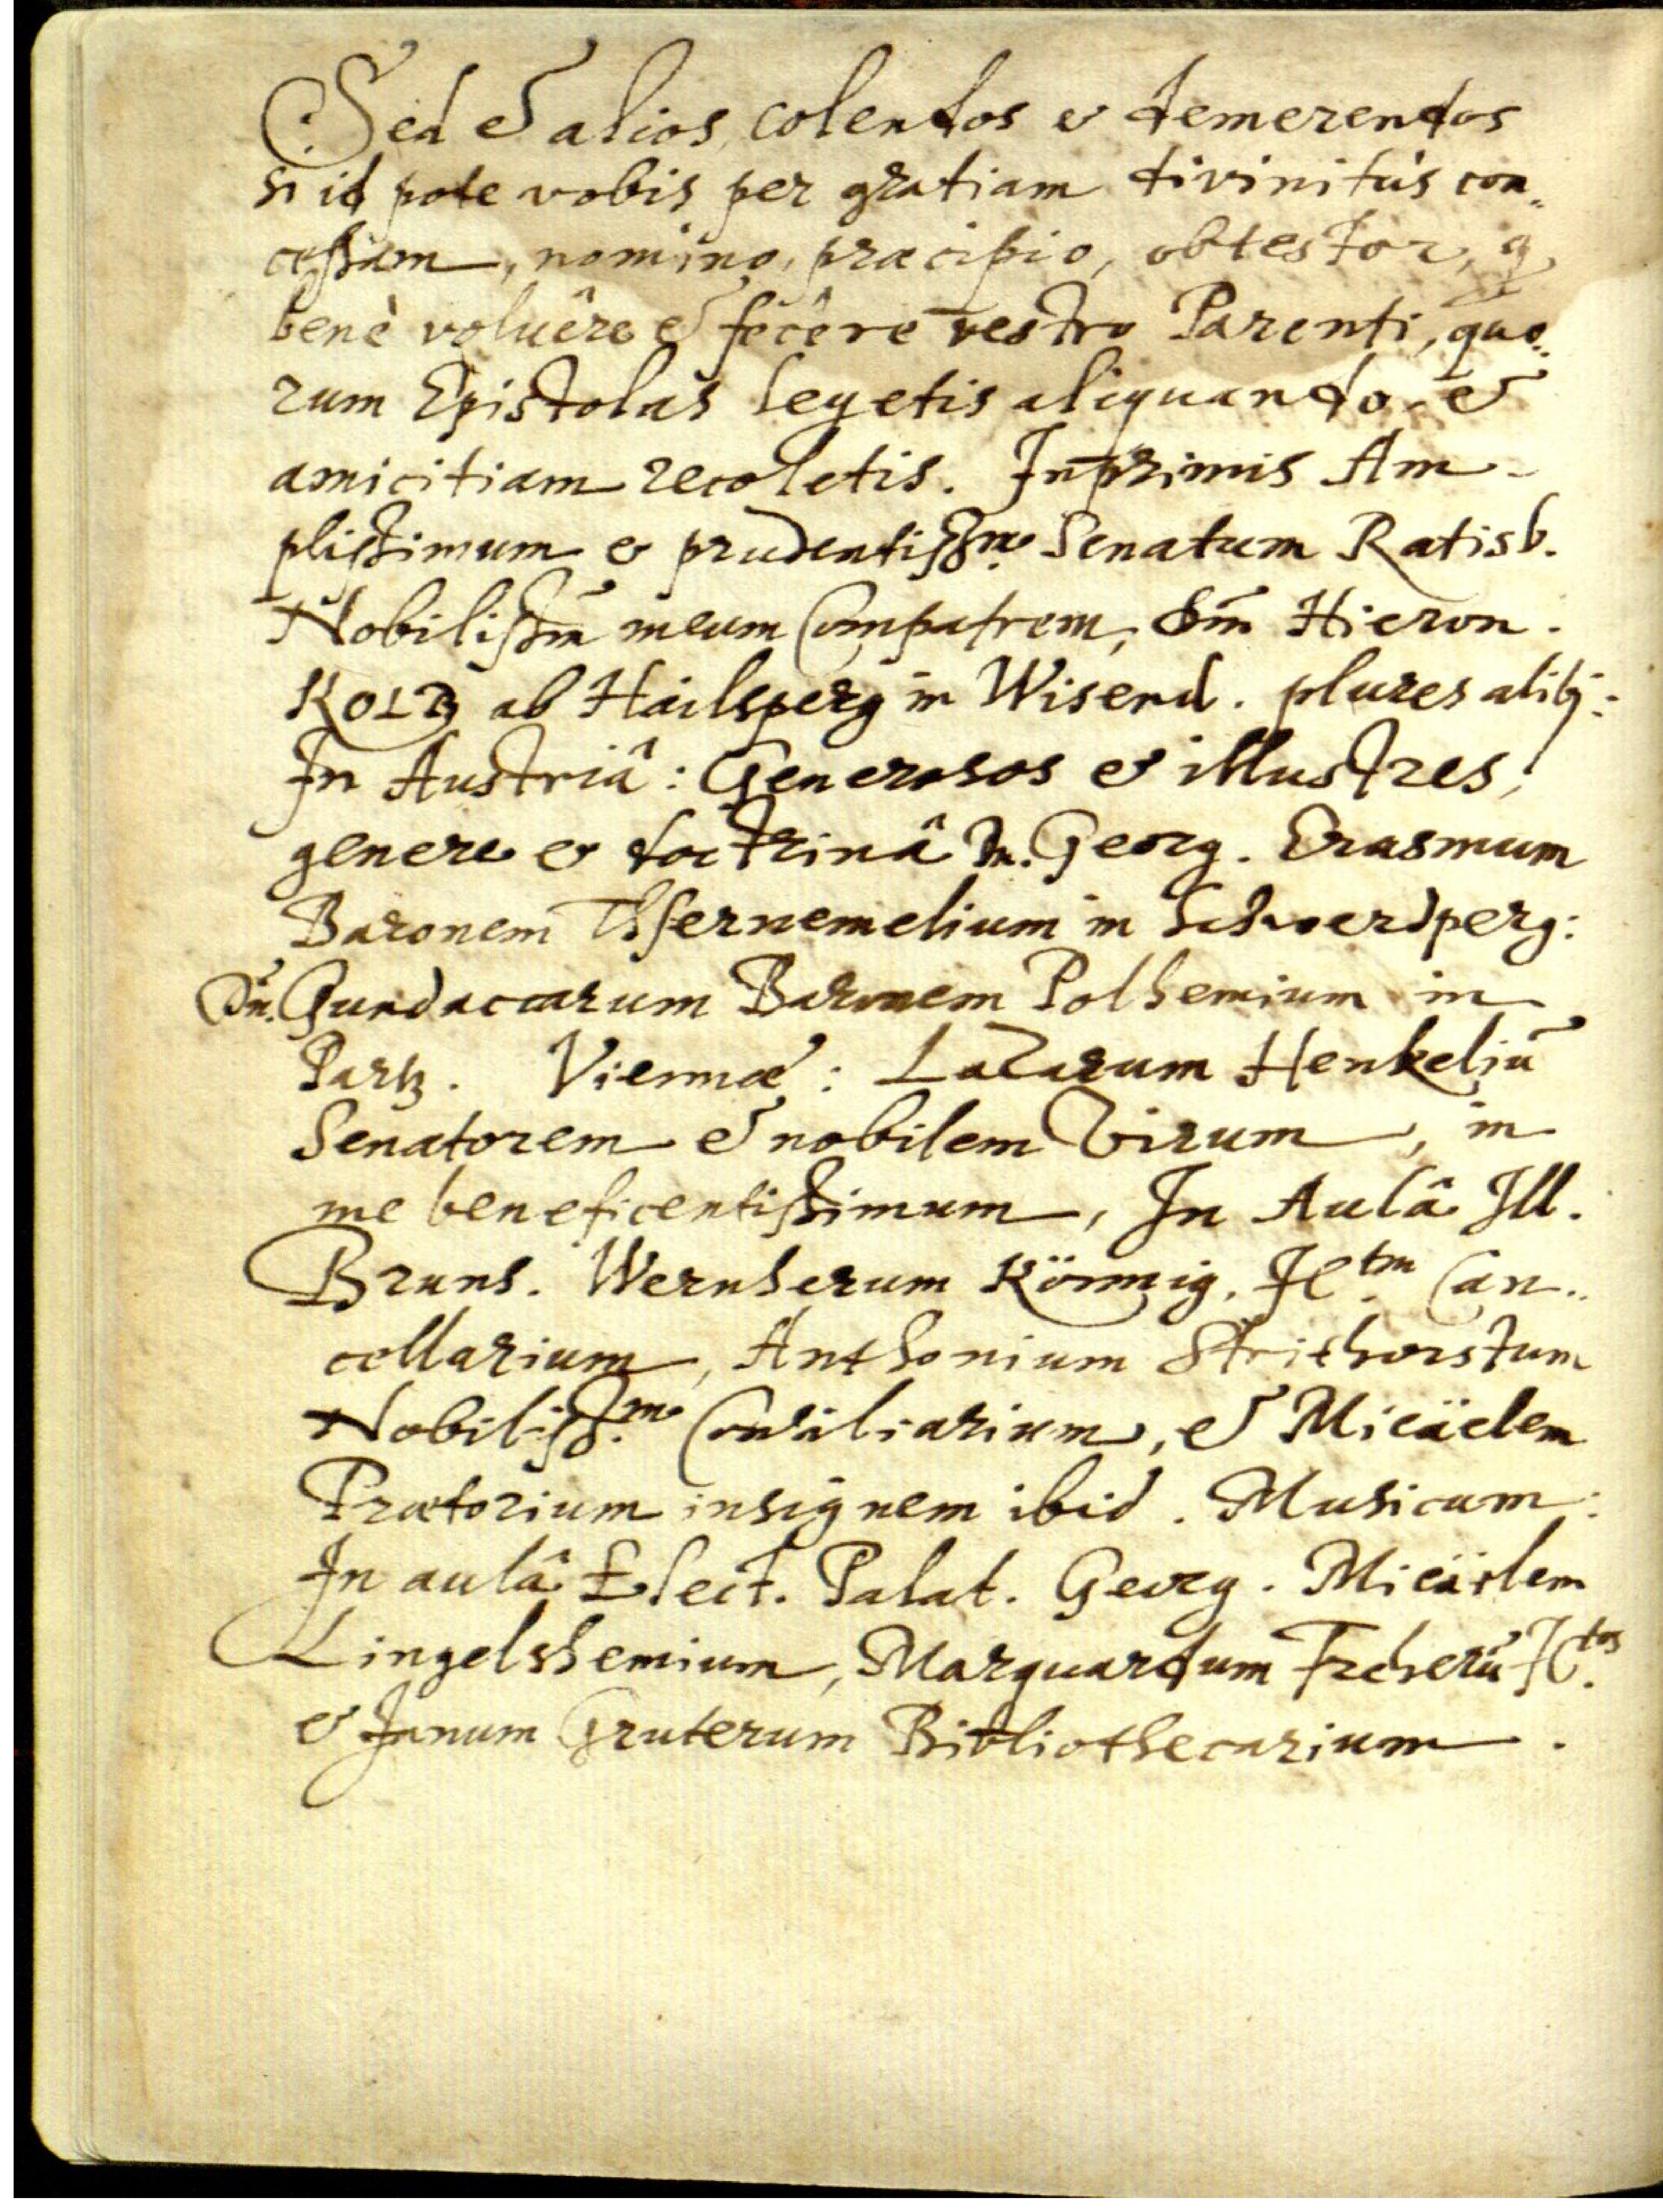 Sed et alios colendos et demerendos
si id pote vobis per gratiam divinitùs con„
cessam, nomino, præcipio, obtestor, q
benè voluêre et fecêre vestro Parenti, quo„
rum Epistolas legetis aliquando et
amicitiam recoletis. Inprimis Am-
plissimum et prudentiss.m Senatum Ratisb.
Nobilissm̄ meum Compatrem, Dm̄ Hieron.
Kolb ab Hailsperg in Wisend. plures alibj:
In Austriâ: Generosos et illustres,
genere et doctrinâ Dn. Georg. Erasmum
Baronem Tschernemelium in Schwerdperg:
Dn̄. Gundaccarum Baronem Polhemium in
Partz. Viennæ: Lazarum Henkeliū
Senatorem et nobilem Virum, in
me beneficentissimum, In Aulâ Ill.
Bruns. Wernherum Könnig. JCtm Can„
cellarium, Anthonium Strithorstum
Nobiliss.m Consiliarium, et Micäelem
Prætorium insignem ibid. Musicum:
In aulâ Elect. Palat. Georg. Micäelem
Lingelshemium, Marquardum Freherū JCtos.
et Janum Gruterum Bibliothecarium.